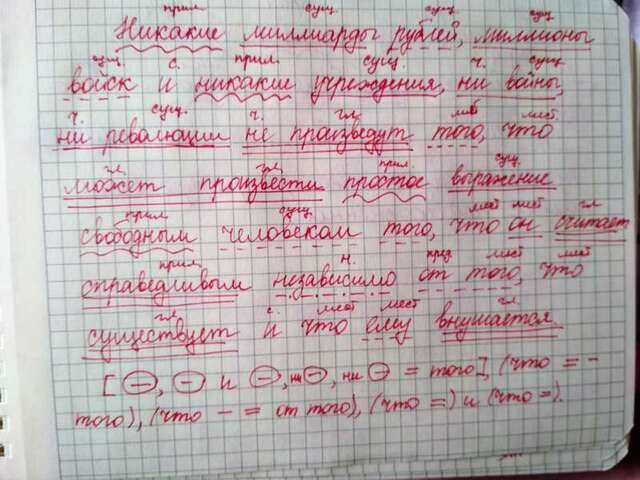 прил. сущ. сущ. сущ.
Никакие миллиарды рублей, миллионы
сущ. с. прил. сущ. ч. сущ.
войск и никакие учреждения, ни войны,
ч. сущ. ч. гл. мест
ни революции не произведут того, что
гл. гл. прил. сущ.
может произвести простое выражение
прил сущ. мест мест гл
свободным человеком того, что он считает
прил. н. пред мест мест
справедливым независимо от того, что
гл. с. мест мест гл.
существует и что ему внушается.
[⊖, ⊖ и ⊖, ни⊖, ни ⊖ = того], (что = -
того), (что - = от того), (что =) и (что =).